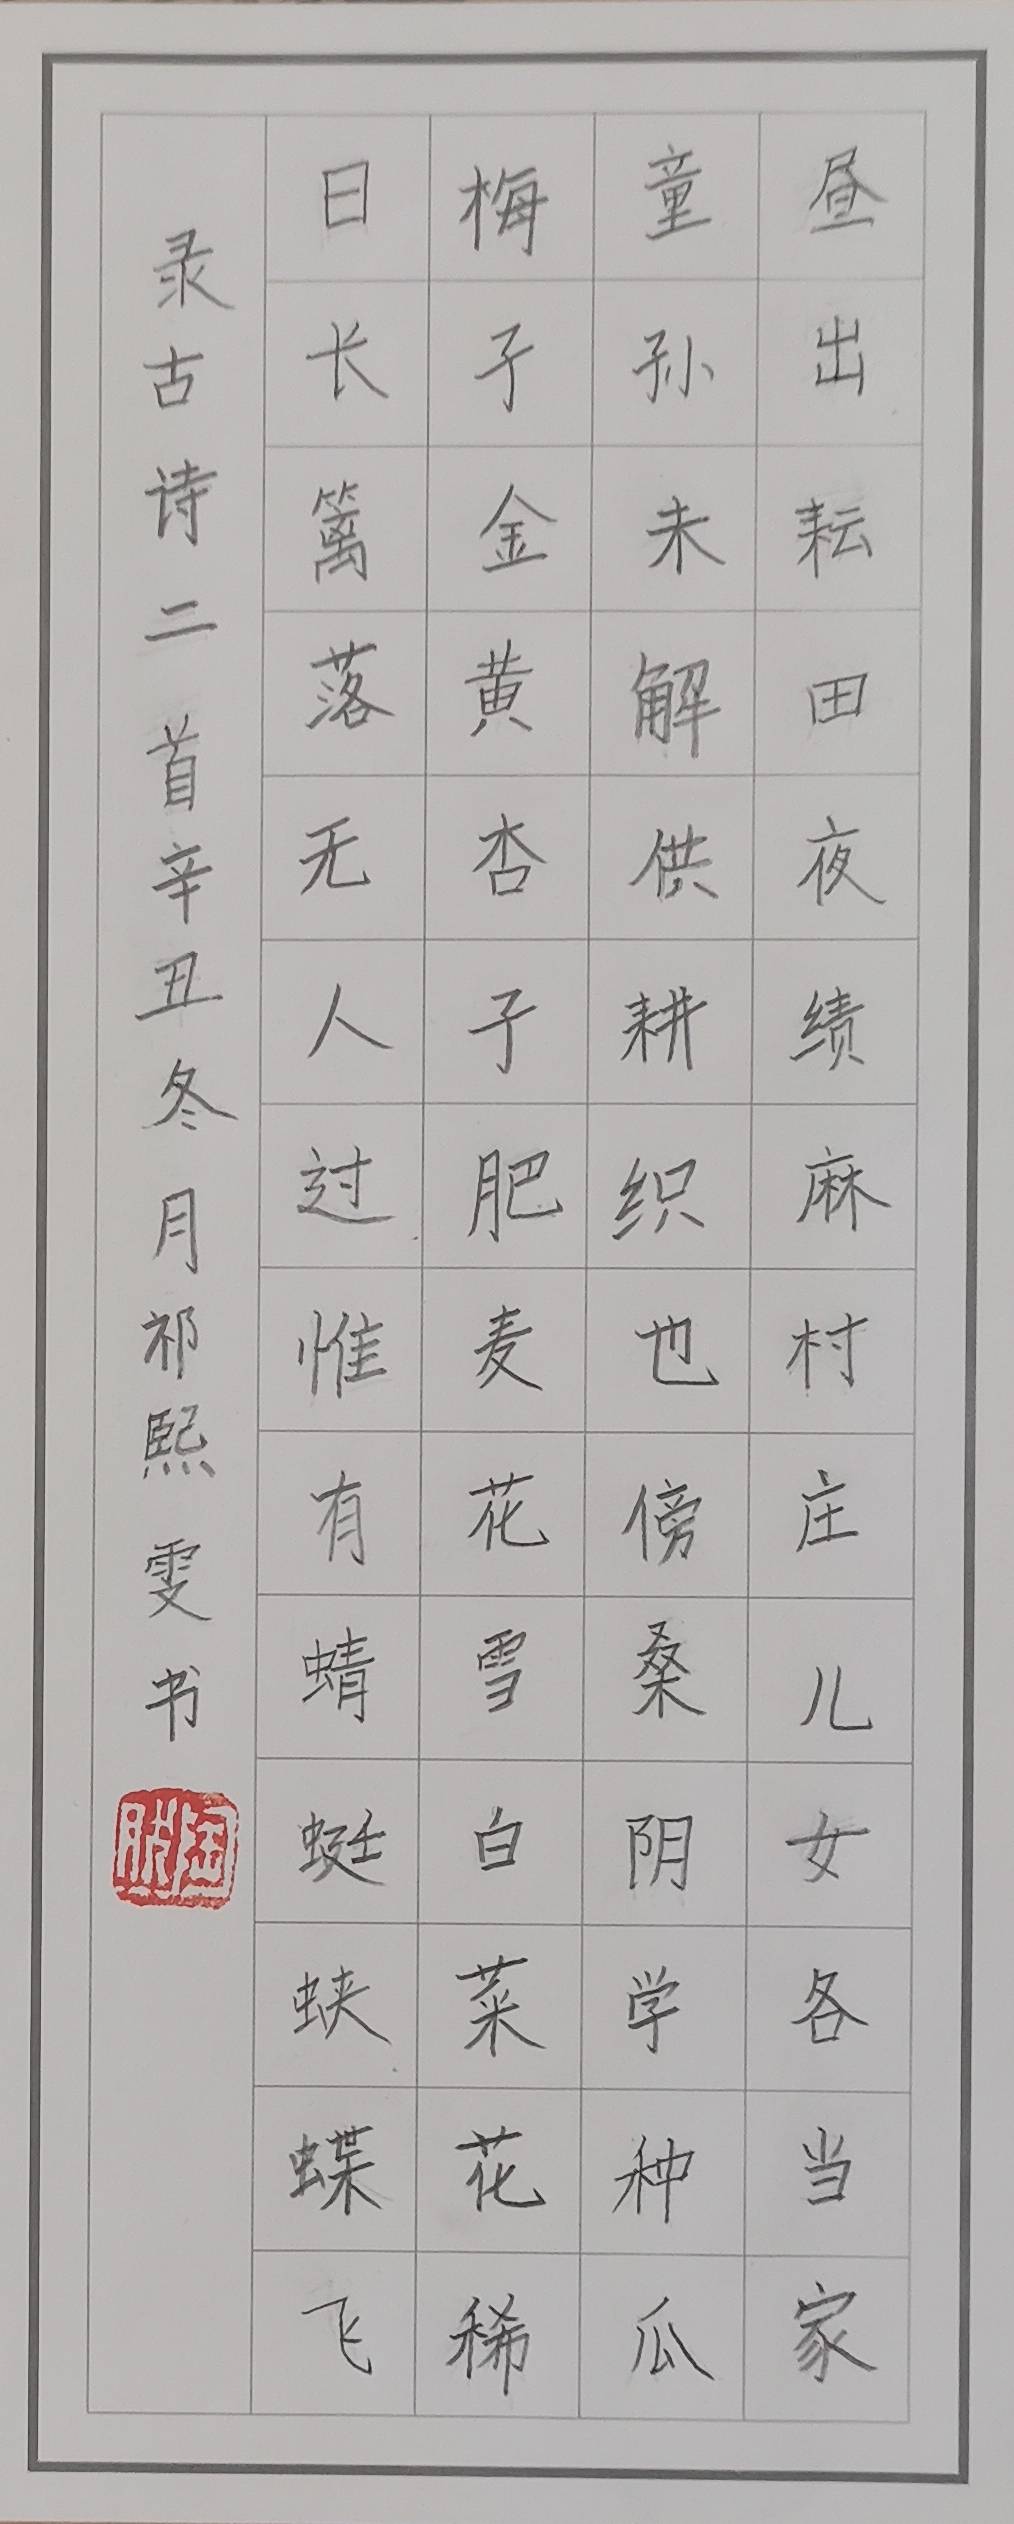 昼出耘田夜绩麻村庄儿女各当家
童孙未解供耕织也傍桑阴学种瓜
梅子金黄杏子肥麦花雪白菜花稀
日长篱落无人过惟有蜻蜓蛱蝶飞
录古诗二首辛丑冬月祁熙雯书